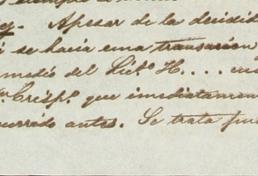 Apesar de la decidid
se hacia una transación
medio del Lic.º H....
Crisp.º que inmediatamen
currido antes. Se trata